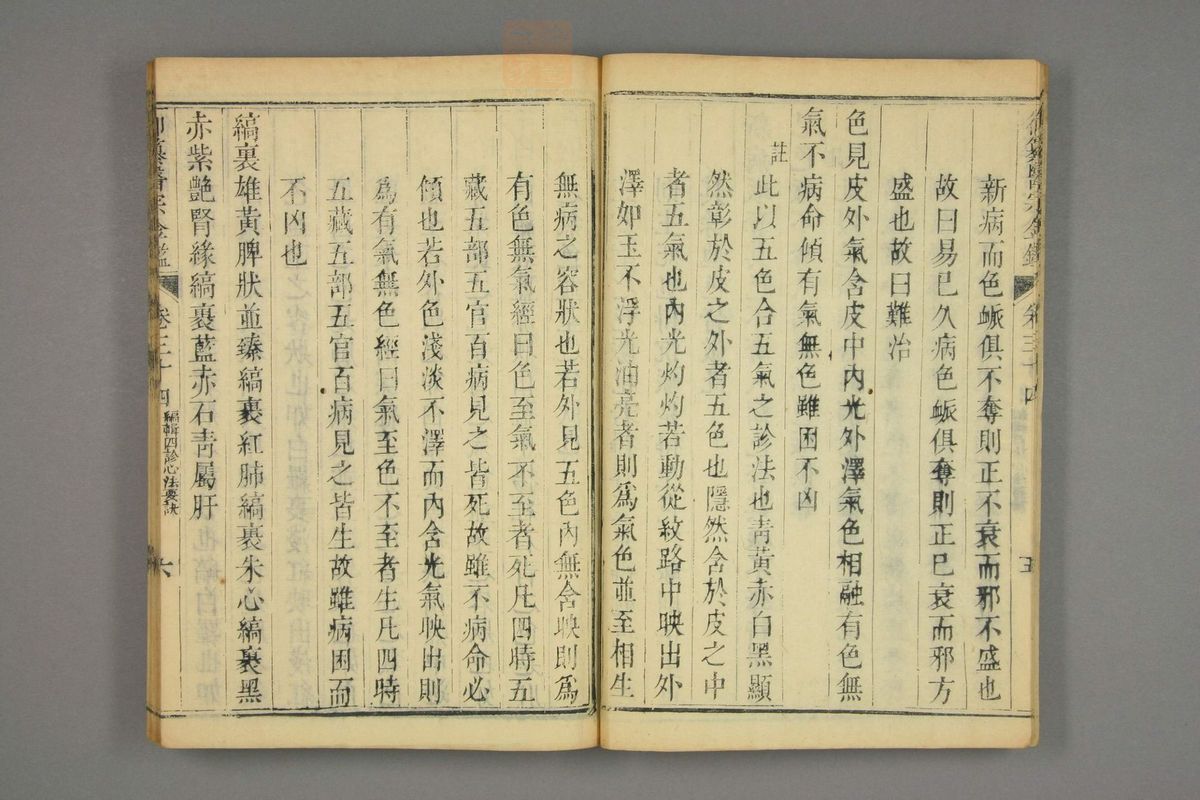 御纂醫宗金鑑 卷三十四 五
新病而色脈俱不奪則正不衰而邪不盛也
故曰易已久病色脈俱奪則正已衰而邪方
盛也故曰難治
色見皮外氣含皮中內光外澤氣色相融有色無
氣不病命傾有氣無色雖困不凶
註此以五色合五氣之診法也青黃赤白黑顯
然彰於皮之外者五色也隱然含於皮之中
者五氣也內光灼灼若動從紋路中映出外
澤如玉不浮光油亮者則爲氣色並至相生
無病之容狀也若外見五色內無含映則爲
有色無氣經曰色至氣不至者死凡四時五
藏五部五官百病見之皆死故雖不病命必
傾也若外色淺淡不澤而內含光氣映出則
爲有氣無色經曰氣至色不至者生凡四時
五藏五部五官百病見之皆生故雖病困而
不凶也
縞裹雄黃脾狀並臻縞裹紅肺縞裹朱心縞裹黑
赤紫艶腎緣縞裹藍赤石青屬肝
御纂醫宗金鑑 卷三十四 編輯四診心法要訣 六